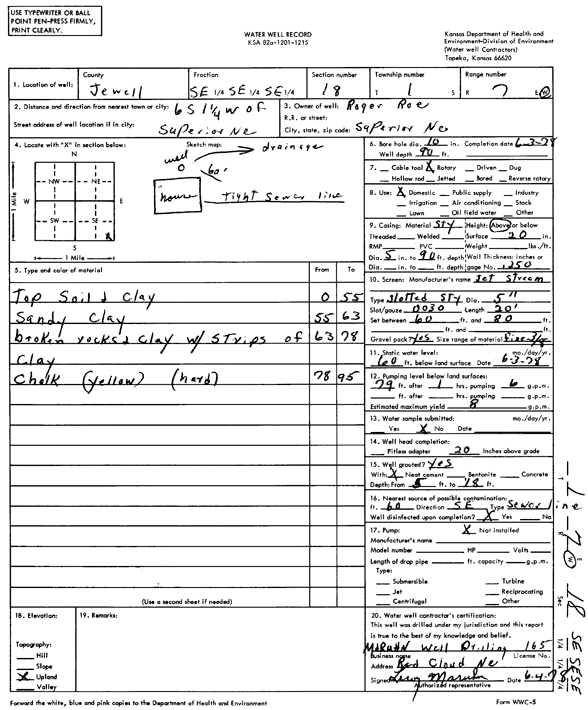 USE TYPEWRITER OR BALL
POINT PEN-PRESS FIRMLY,
PRINT CLEARLY.
WATER WELL RECORD
KSA 82a-1201-1215
Kansas Department of Health and
Environment-Division of Environment
(Water well Contractors)
Topeka, Kansas 66620
1. Location of well: County Jewell Fraction SE 1/4 SE 1/4 SE 1/4 Section number 18 Township number T 1 S Range number R 7 E W
2. Distance and direction from nearest town or city: 6 S 1 1/4 W of
Street address of well location if in city: Superior Ne
3. Owner of well: Roger Roe
R.R. or street:
City, state, zip code: Superior Ne
4. Locate with "X" in section below:
N
NW NE
W E
SW SE
X
S
1 Mile
1 Mile
Sketch map:
well → drainage
0 60'
house tight sewer line
5. Type and color of material From To
Top Soil & Clay 0 55
Sandy Clay 55 63
broken rocks & clay w/ strips of 63 78
Clay
Chalk (yellow) (hard) 78 95
(Use a second sheet if needed)
6. Bore hole dia. 10 in. Completion date 6-3-78
Well depth 90 ft.
7. Cable tool X Rotary Driven Dug
Hollow rod Jetted Bored Reverse rotary
8. Use: X Domestic Public supply Industry
Irrigation Air conditioning Stock
Lawn Oil field water Other
9. Casing: Material Sty Height: Above or below
Threaded Welded Surface 20 in.
RMP PVC Weight lbs./ft.
Dia. 5 in. to 90 ft. depth Wall Thickness: inches or
Dia. in. to ft. depth gage No. .250
10. Screen: Manufacturer's name Jet Stream
Type Slotted Sty Dia. 5"
Slot/gauze .0030 Length 20'
Set between 60 ft. and 80 ft.
ft. and ft.
Gravel pack? Yes Size range of material
11. Static water level: mo./day/yr.
60 ft. below land surface Date 6-3-78
12. Pumping level below land surfaces:
79 ft. after 1 hrs. pumping 6 g.p.m.
ft. after hrs. pumping g.p.m.
Estimated maximum yield 8 g.p.m.
13. Water sample submitted: mo./day/yr.
Yes X No Date
14. Well head completion:
Pitless adapter 20 Inches above grade
15. Well grouted? Yes
With: X Neat cement Bentonite Concrete
Depth: From 5 ft. to 18 ft.
16. Nearest source of possible contamination:
ft. 60 Direction SE Type Sewer line
Well disinfected upon completion? X Yes No
17. Pump: X Not installed
Manufacturer's name
Model number HP Volts
Length of drop pipe ft. capacity g.p.m.
Type:
Submersible Turbine
Jet Reciprocating
Centrifugal Other
18. Elevation:
Topography:
Hill
Slope
X Upland
Valley
19. Remarks:
20. Water well contractor's certification:
This well was drilled under my jurisdiction and this report
is true to the best of my knowledge and belief.
Maruhn Well Drilling 165
Business name License No.
Address Red Cloud Ne
Signed Date 6-4-78
Authorized representative
T 1 R 7 W Sec 18 SE SE SE 1/4 1/4 1/4
Forward the white, blue and pink copies to the Department of Health and Environment
Form WWC-5